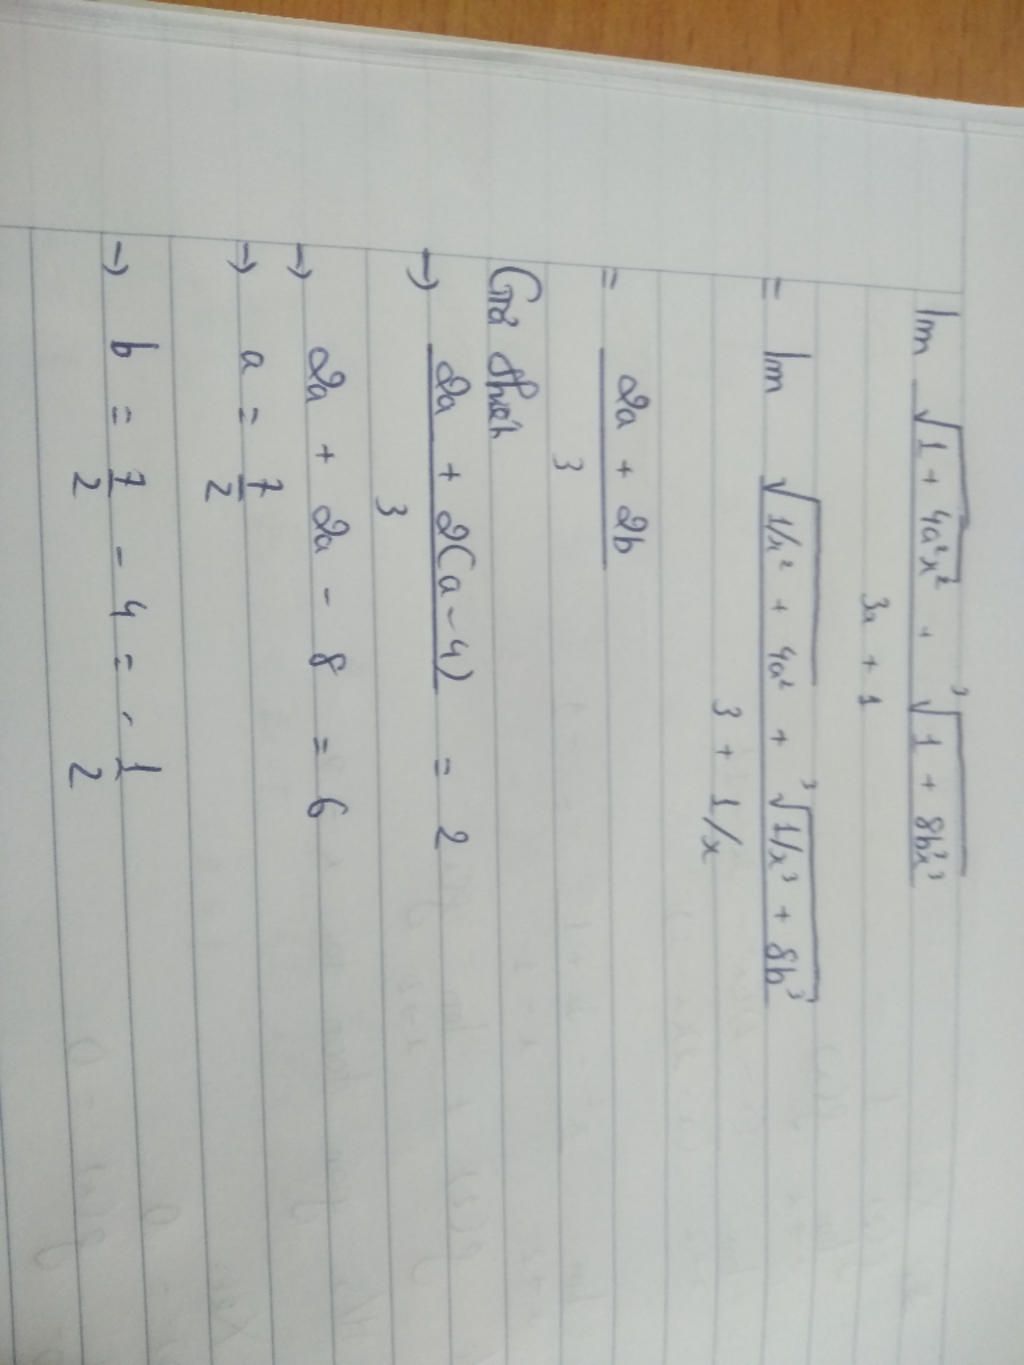 lim √1 + 4a²x² + ³√1 + 8b³x³
3x + 1
= lim √1/x² + 4a² + ³√1/x³ + 8b³
3 + 1/x
= 2a + 2b
3
Giả thiết
→ 2a + 2(a - 4) = 2
3
→ 2a + 2a - 8 = 6
→ a = 7
2
→ b = 7 - 4 = - 1
2 2